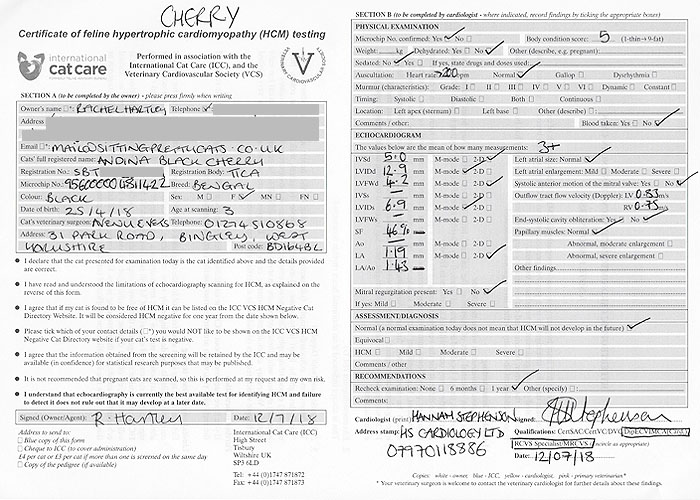 CHERRY
Certificate of feline hypertrophic cardiomyopathy (HCM) testing
international
cat care
Performed in association with the
International Cat Care (ICC), and the
Veterinary Cardiovascular Society (VCS)
VETERINARY CARDIOVASCULAR SOCIETY
V
SECTION A (to be completed by the owner) - please press firmly when writing
Owner's name □*: RACHEL HARTLEY Telephone
Address
Email □*: MAIL@SITTINGPRETTYCATS.CO.UK
Cats' full registered name: ANDINA BLACK CHERRY
Registration No.: SBT Registration Body: TICA
Microchip No.: Breed: BENGAL
Colour: BLACK Sex: M □ F ✓ MN □ FN □
Date of birth: 25/4/18 Age at scanning: 3
Cat's veterinary surgeon: Telephone: 01274 510868
Address: 31 PARK ROAD, BINGLEY, WEST
YORKSHIRE Post code: BD16 4BL
• I declare that the cat presented for examination today is the cat identified above and the details provided
are correct.
• I have read and understood the limitations of echocardiography scanning for HCM, as explained on the
reverse of this form.
• I agree that if my cat is found to be free of HCM it can be listed on the ICC VCS HCM Negative Cat
Directory Website. It will be considered HCM negative for one year from the date shown below.
• Please tick which of your contact details (□*) you would NOT like to be shown on the ICC VCS HCM
Negative Cat Directory website if your cat's test is negative.
• I agree that the information obtained from the screening will be retained by the ICC and may be
available (in confidence) for statistical research purposes that may be published.
• It is not recommended that pregnant cats are scanned, so this is performed at my request and my own risk.
• I understand that echocardiography is currently the best available test for identifying HCM and failure
to detect it does not rule out that it may develop at a later date.
Signed (Owner/Agent): R. Hartley Date: 12/7/18
Address to send to:
□ Blue copy of this form
□ Cheque to ICC (to cover administration)
£4 per cat or £3 per cat if more than one is screened on the same day
□ Copy of the pedigree (if available)
International Cat Care (ICC)
High Street
Tisbury
Wiltshire UK
SP3 6LD
Tel: +44 (0)1747 871872
Fax: +44 (0)1747 871873
SECTION B (to be completed by cardiologist - where indicated, record findings by ticking the appropriate boxes)
PHYSICAL EXAMINATION
Microchip No. confirmed: Yes ✓ No □ Body condition score: 5 (1=thin→9=fat)
Weight: kg Dehydrated: Yes □ No ✓ Other (describe, e.g. pregnant):
Sedated: No ✓ Yes □ If yes, state drugs and doses used:
Auscultation: Heart rate: bpm Normal ✓ Gallop □ Dysrhythmia □
Murmur (characteristics): Grade: I □ II □ III □ IV □ V □ VI □ Dynamic □ Constant □
Timing: Systolic □ Diastolic □ Both □ Continuous □
Location: Left apex (sternum) □ Left base □ Other (describe) □
Comments / other: Blood taken: Yes □ No ✓
ECHOCARDIOGRAM
The values below are the mean of how many measurements: 3+
IVSd 5.0 mm M-mode □ 2-D ✓
LVIDd 12.9 mm M-mode □ 2-D ✓
LVFWd 4.2 mm M-mode □ 2-D ✓
IVSs mm M-mode □ 2-D □
LVIDs 6.9 mm M-mode □ 2-D ✓
LVFWs mm M-mode □ 2-D □
SF 46%
Ao mm M-mode □ 2-D □
LA 1.19 mm M-mode □ 2-D ✓
LA/Ao 1.43
Mitral regurgitation present: Yes □ No ✓
If yes: Mild □ Moderate □ Severe □
Left atrial size: Normal ✓
Left atrial enlargement: Mild □ Moderate □ Severe □
Systolic anterior motion of the mitral valve: Yes □ No ✓
Outflow tract flow velocity (Doppler): LV 0.83
RV 0.75
End-systolic cavity obliteration: Yes □ No ✓
Papillary muscles: Normal ✓
Abnormal, moderate enlargement □
Abnormal, severe enlargement □
Other findings:
ASSESSMENT/DIAGNOSIS
Normal (a normal examination today does not mean that HCM will not develop in the future) ✓
Equivocal □
HCM □ Mild □ Moderate □ Severe □
Comments / other
RECOMMENDATIONS
Recheck examination: None □ 6 months □ 1 year ✓ Other (specify) □
Comments:
Cardiologist (print) HANNAH STEPHENSON Signed: HStephenson
Address stamp: HS CARDIOLOGY LTD Qualifications: CertSAC/CertVC/DVC/DipECVIM-CA(Card)/
07770118886 RCVS Specialist/MRCVS (circle as appropriate)
Date: 12/07/18
Copies: white - owner, blue - ICC, yellow - cardiologist, pink - primary veterinarian*
* Your veterinary surgeon is welcome to contact the veterinary cardiologist for further details about these findings.